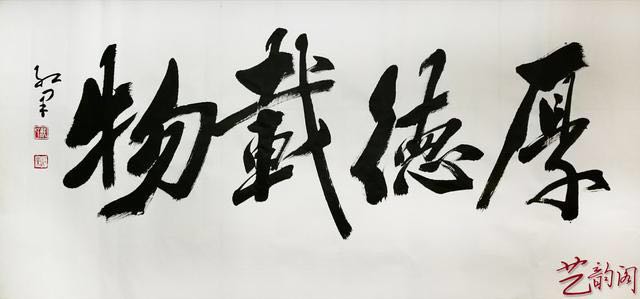 厚德載物
艺韵阁